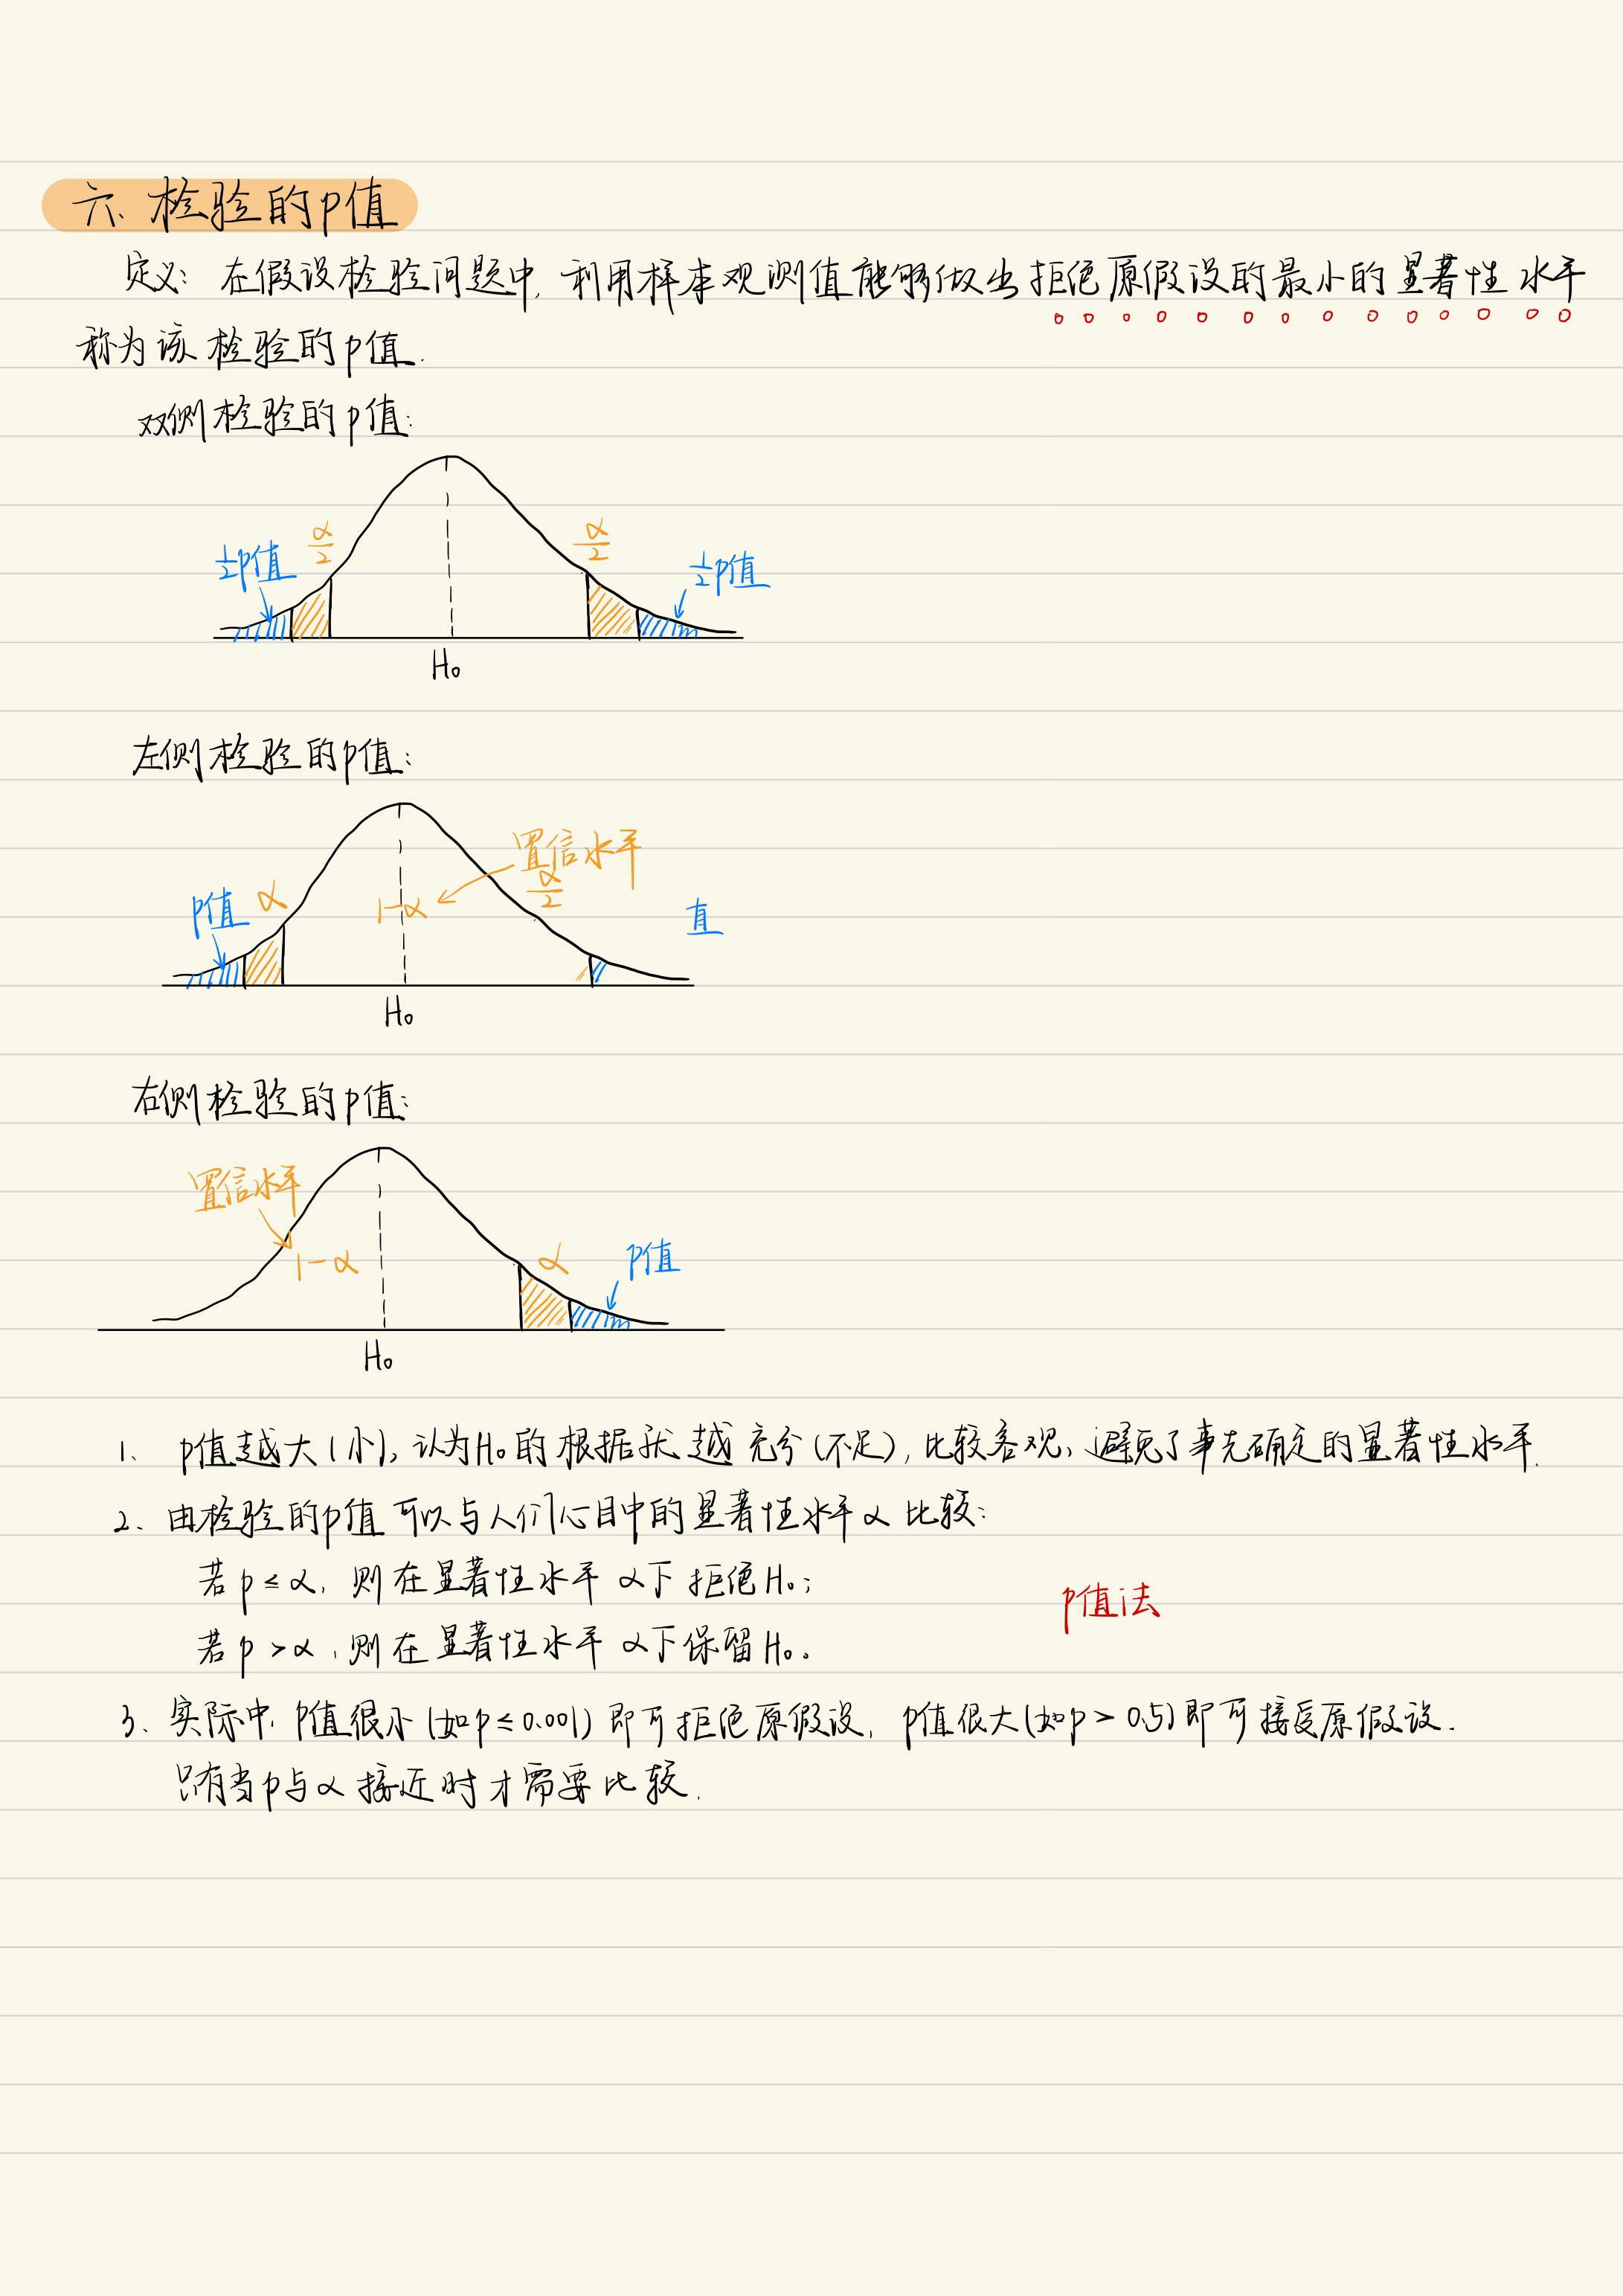 六、检验的p值
定义: 在假设检验问题中, 利用样本观测值能够做出拒绝原假设的最小的显著性水平
称为该检验的p值.
双侧检验的p值:
α/2 α/2
½p值 ½p值
H₀
左侧检验的p值:
置信水平
p值 α 1-α α/2 直
H₀
右侧检验的p值:
置信水平
1-α α p值
H₀
1、 p值越大(小), 认为H₀的根据就越充分(不足), 比较客观, 避免了事先确定的显著性水平.
2、由检验的p值可以与人们心目中的显著性水平α比较:
若p≤α, 则在显著性水平α下拒绝H₀;
p值法
若p>α, 则在显著性水平α下保留H₀。
3、实际中, p值很小(如p≤0.001)即可拒绝原假设, p值很大(如p>0.5)即可接受原假设.
只有当p与α接近时才需要比较.